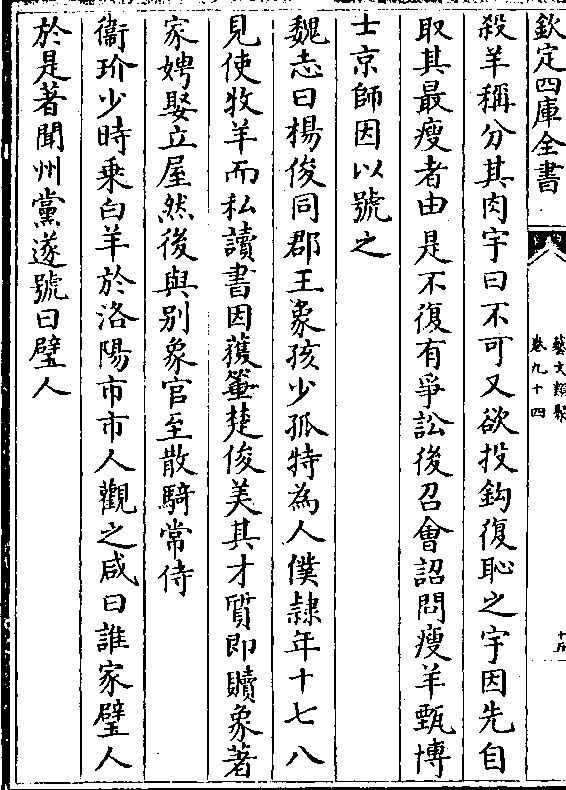 欽定四庫全書
藝文類聚
卷九十四
殺羊稱分其肉宇曰不可又欲投鈎復恥之宇因先自
取其最瘦者由是不復有爭訟後召會詔問瘦羊甄博
士京師因以號之
魏志曰楊俊同郡王象孩少孤特為人僕隷年十七八
見使牧羊而私讀書因獲箠楚俊美其才質即贖象著
家娉娶立屋然後與别象官至散騎常侍
衞玠少時乗白羊於洛陽市市人觀之咸曰誰家璧人
於是著聞州黨遂號曰璧人